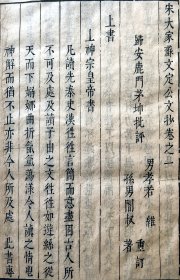 宋大家蘇文定公文抄卷之一
歸安鹿門茅坤批評
男孝若 維 重訂
孫男闇叔 著
上書
上神宗皇帝書
凡讀先秦史漢往往言簡而意盡固古人所
不可及處及讀子由之文往往如遊絲之從
天而下嬝娜曲折氤氳蕩漾令人讀之情
神解而猶不止亦非今人所及處 此書專